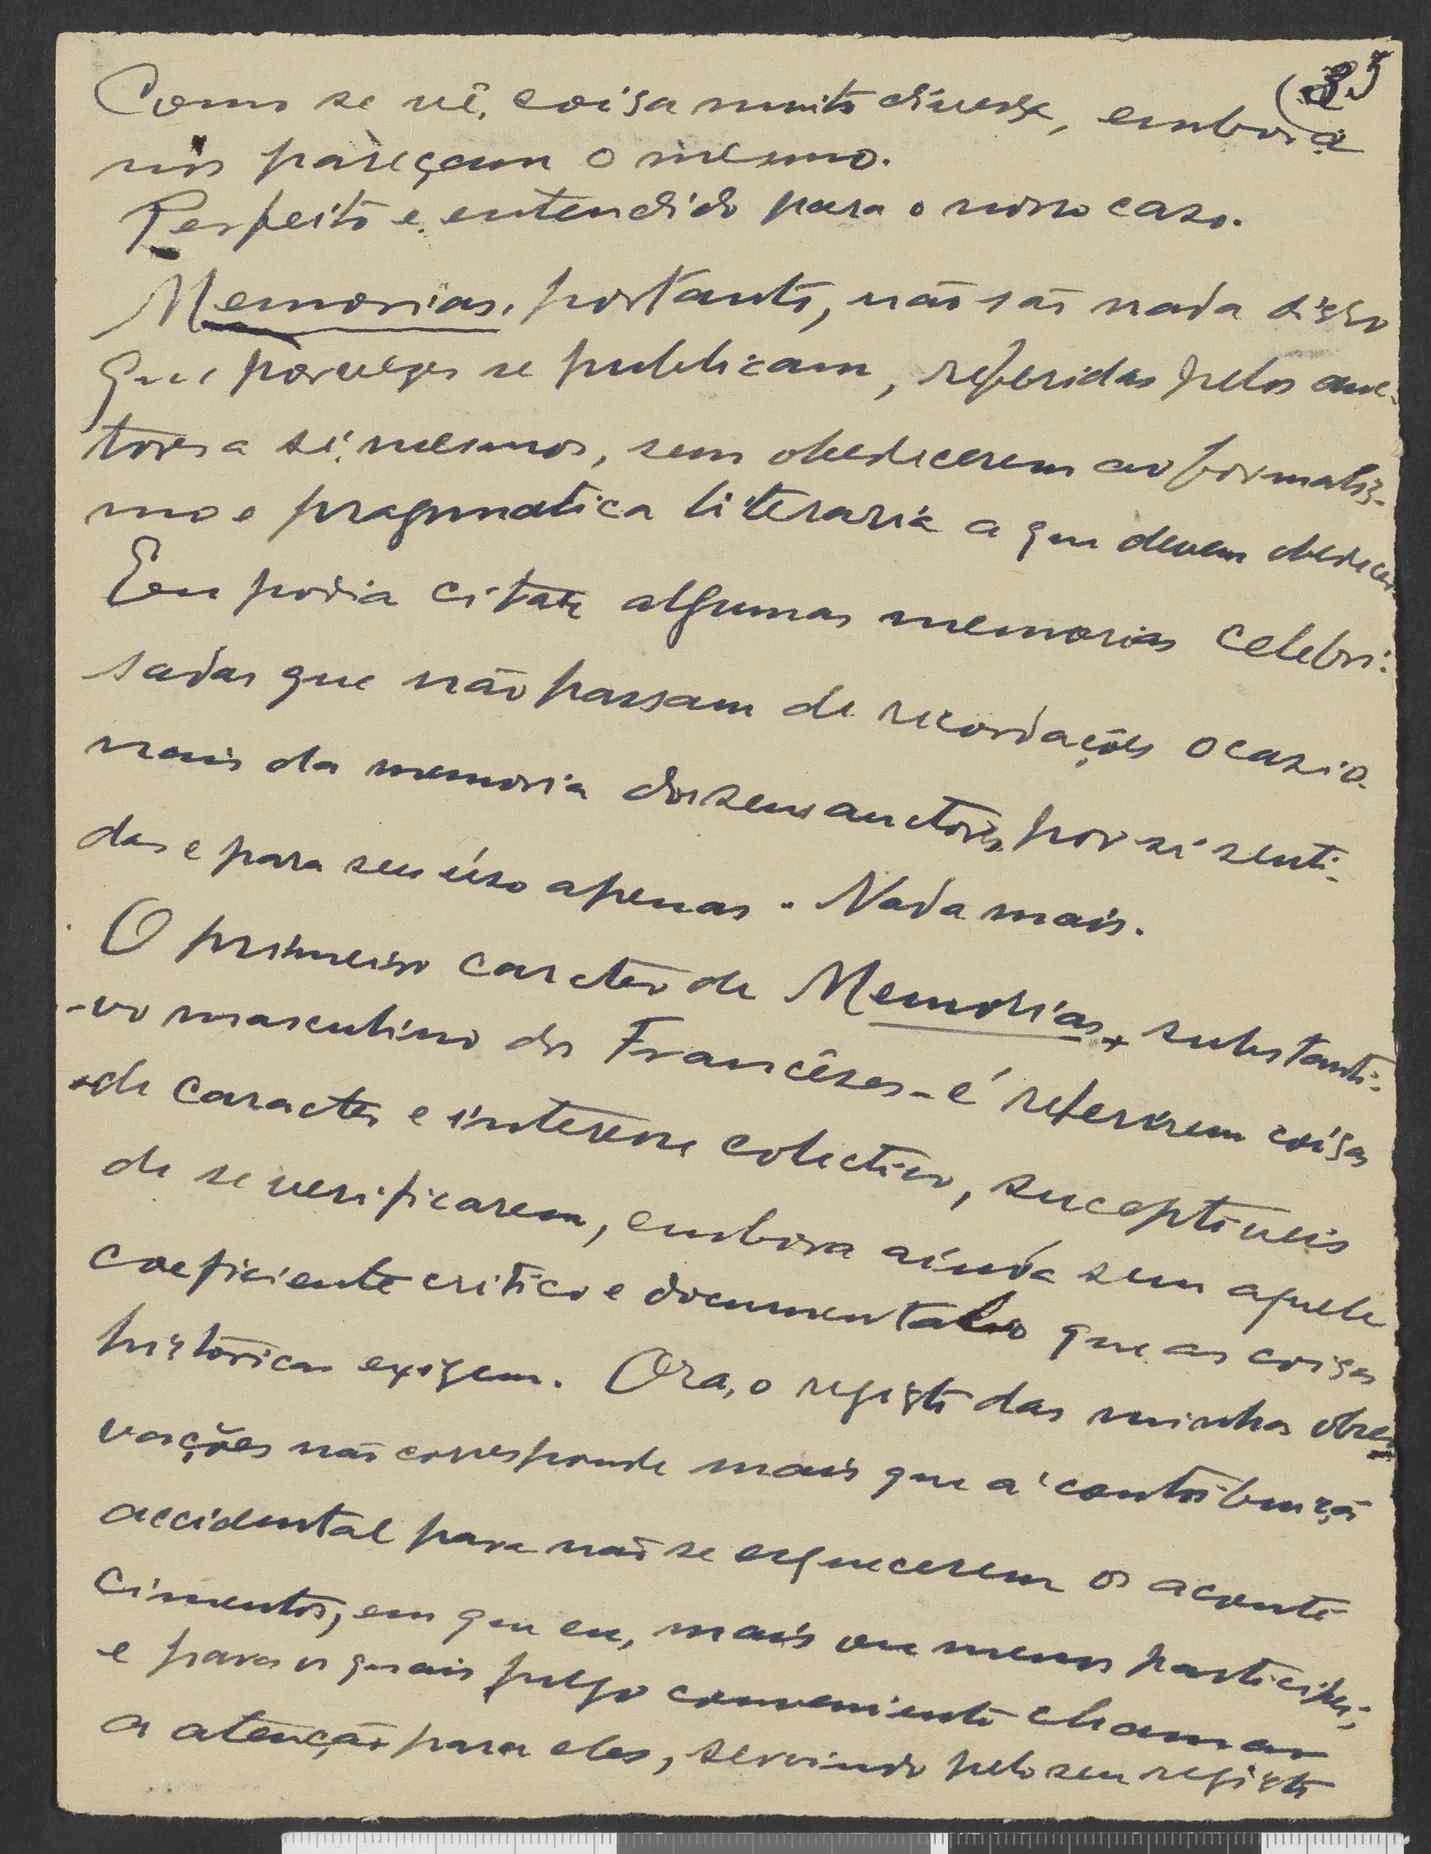 (35
Como se vê, coisa muito diversa, embora
nos pareçam o mesmo.
Perfeito e entendido para o nosso caso.
Memorias, portanto, não são nada disso
que por vezes se publicam, referidas pelos auc-
tores a si mesmos, sem obedecerem ao formalis-
mo e pragmatica literaria a que devem obedecer.
Eu podia citar algumas memorias celebri-
sadas que não passam de recordações ocasio-
nais da memoria dos seus auctores, por si senti-
das e para seu úso apenas. Nada mais.
O primeiro carcter de Memorias, substanti-
-vo masculino dos Francêses - é referirem coisas
de caracter e interesse colectivo, suceptiveis
de se verificarem, embora ainda sem aquele
coeficiente critico e documental que as coisas
historicas exigem. Ora, o registo das minhas obser-
vações não corresponde mais que a contribuição
accidental para não se esquecerem os aconte-
cimentos, em que eu, mais ou menos participei,
e para os quais julgo conveniente chamar
a atenção para eles, servindo pelo seu registo